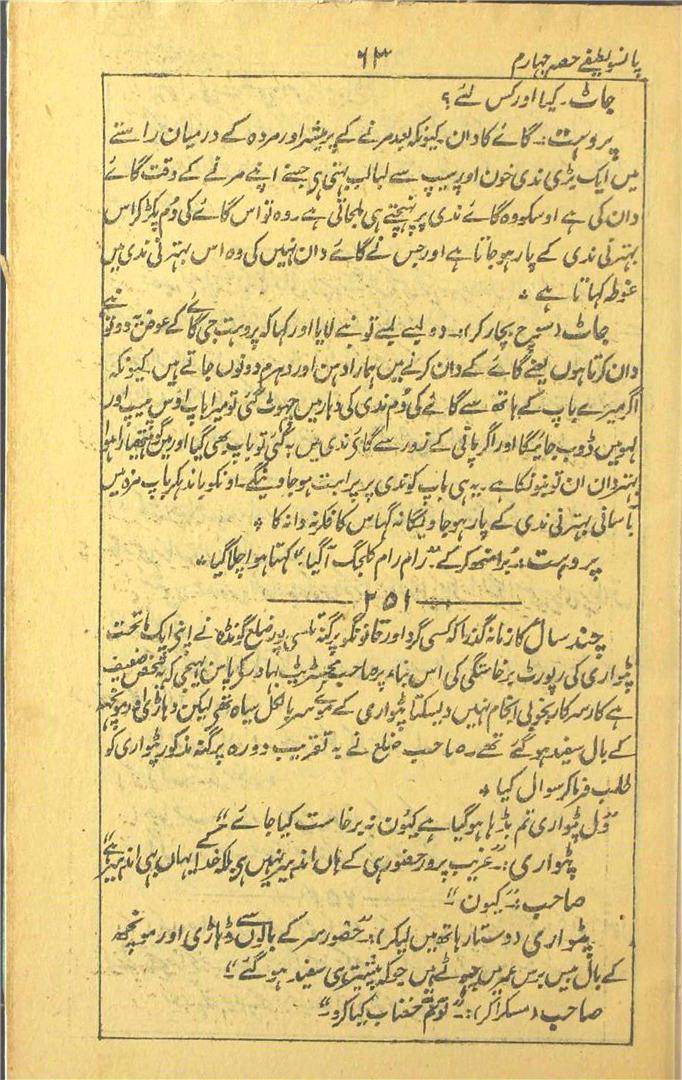 پانسو لطیفے حصہ چہارم ۶۳
جاٹ۔ کیا اور کس لئے؟
پروہت:۔ گائے کا دان کیونکہ بعد مرنے کے پرمیشر اور مردہ کے درمیان راستے
میں ایک بڑی ندی خون اور پیپ سے لبالب بہتی ہے جسنے اپنے مرنے کے وقت گائے
دان کی ہے اوسکو وہ گائے ندی پر پہنچتے ہی ملجاتی ہے۔ وہ تو اس گائے کی دُم پکڑ کر اس
بہترنی ندی کے پار ہو جاتا ہے اور جس نے گائے دان نہیں کی وہ اس بہترنی ندی میں
غوطہ کہاتا ہے ٭
جاٹ (سوچ بچار کر):۔ دو لمبے لمبے تونبے لایا اور کہا کہ پروہت جی گائے کے عوض یہ دو تونبے
دان کرتا ہوں یعنے گائے کے دان کرنے میں ہمارا دہن اور دہرم دونوں جاتے ہیں کیونکہ
اگر میرے باپ کے ہاتھ سے گائے کی دُم ندی کی دہار میں چہوٹ گئی تو میرا باپ اوس پیپ اور
لہو میں ڈوب جائیگا اور اگر پانی کے زور سے گائے ندی میں بہ گئی تو باپ بھی گیا اور میں
بہتر دان ان تونبوں کا ہے۔ یہ ہی باپ کو ندی پر پراپت ہو جاوینگے۔ اونکو باندہکر باپ مزہ میں
بآسانی بہترنی ندی کے پار ہو جاویگا نہ گہاس کا فکر نہ دانہ کا ٭
پروہت:۔ بُرا منھ کر کے۔ "رام رام کلجگ آگیا" کہتا ہوا چلا گیا ٭
۲۵۱
چند سال کا زمانہ گذرا کہ کسی گرد اور قانونگو پرگنہ تلسی پور ضلع گونڈہ نے اپنے ایک ماتحت
پٹواری کی رپورٹ برخاستگی کی اس بناء پر صاحب مجسٹریٹ بہادر کے پاس بھیجی کہ یہ شخص ضعیف
ہے کار سرکار بخوبی انجام نہیں دیسکتا پٹواری کے موئے سر بالکل سیاہ تھے لیکن ڈہاڑی اور مونچھ
کے بال سفید ہو گئے تھے۔ صاحب ضلع نے بہ تقریب دورہ پرگنہ مذکور پٹواری کو
طلب فرما کر سوال کیا ٭
"ول پٹواری تم بڈہا ہو گیا ہے کیوں نہ برخاست کیا جائے"
پٹواری:۔ "غریب پرور حضور ہی کے ہاں اندہیر نہیں ہے بلکہ خدا کے یہاں بھی اندہیر ہے"
صاحب:۔ "کیوں"
پٹواری (دستار ہاتھ میں لیکر):۔ "حضور سر کے بالوں سے ڈہاڑی اور مونچھ
کے بال بیس برس عمر میں چہوٹے ہیں جو کہ پیشتر ہی سفید ہو گئے"
صاحب (مسکرا کر):۔ "تو تم خضاب کیا کرو"